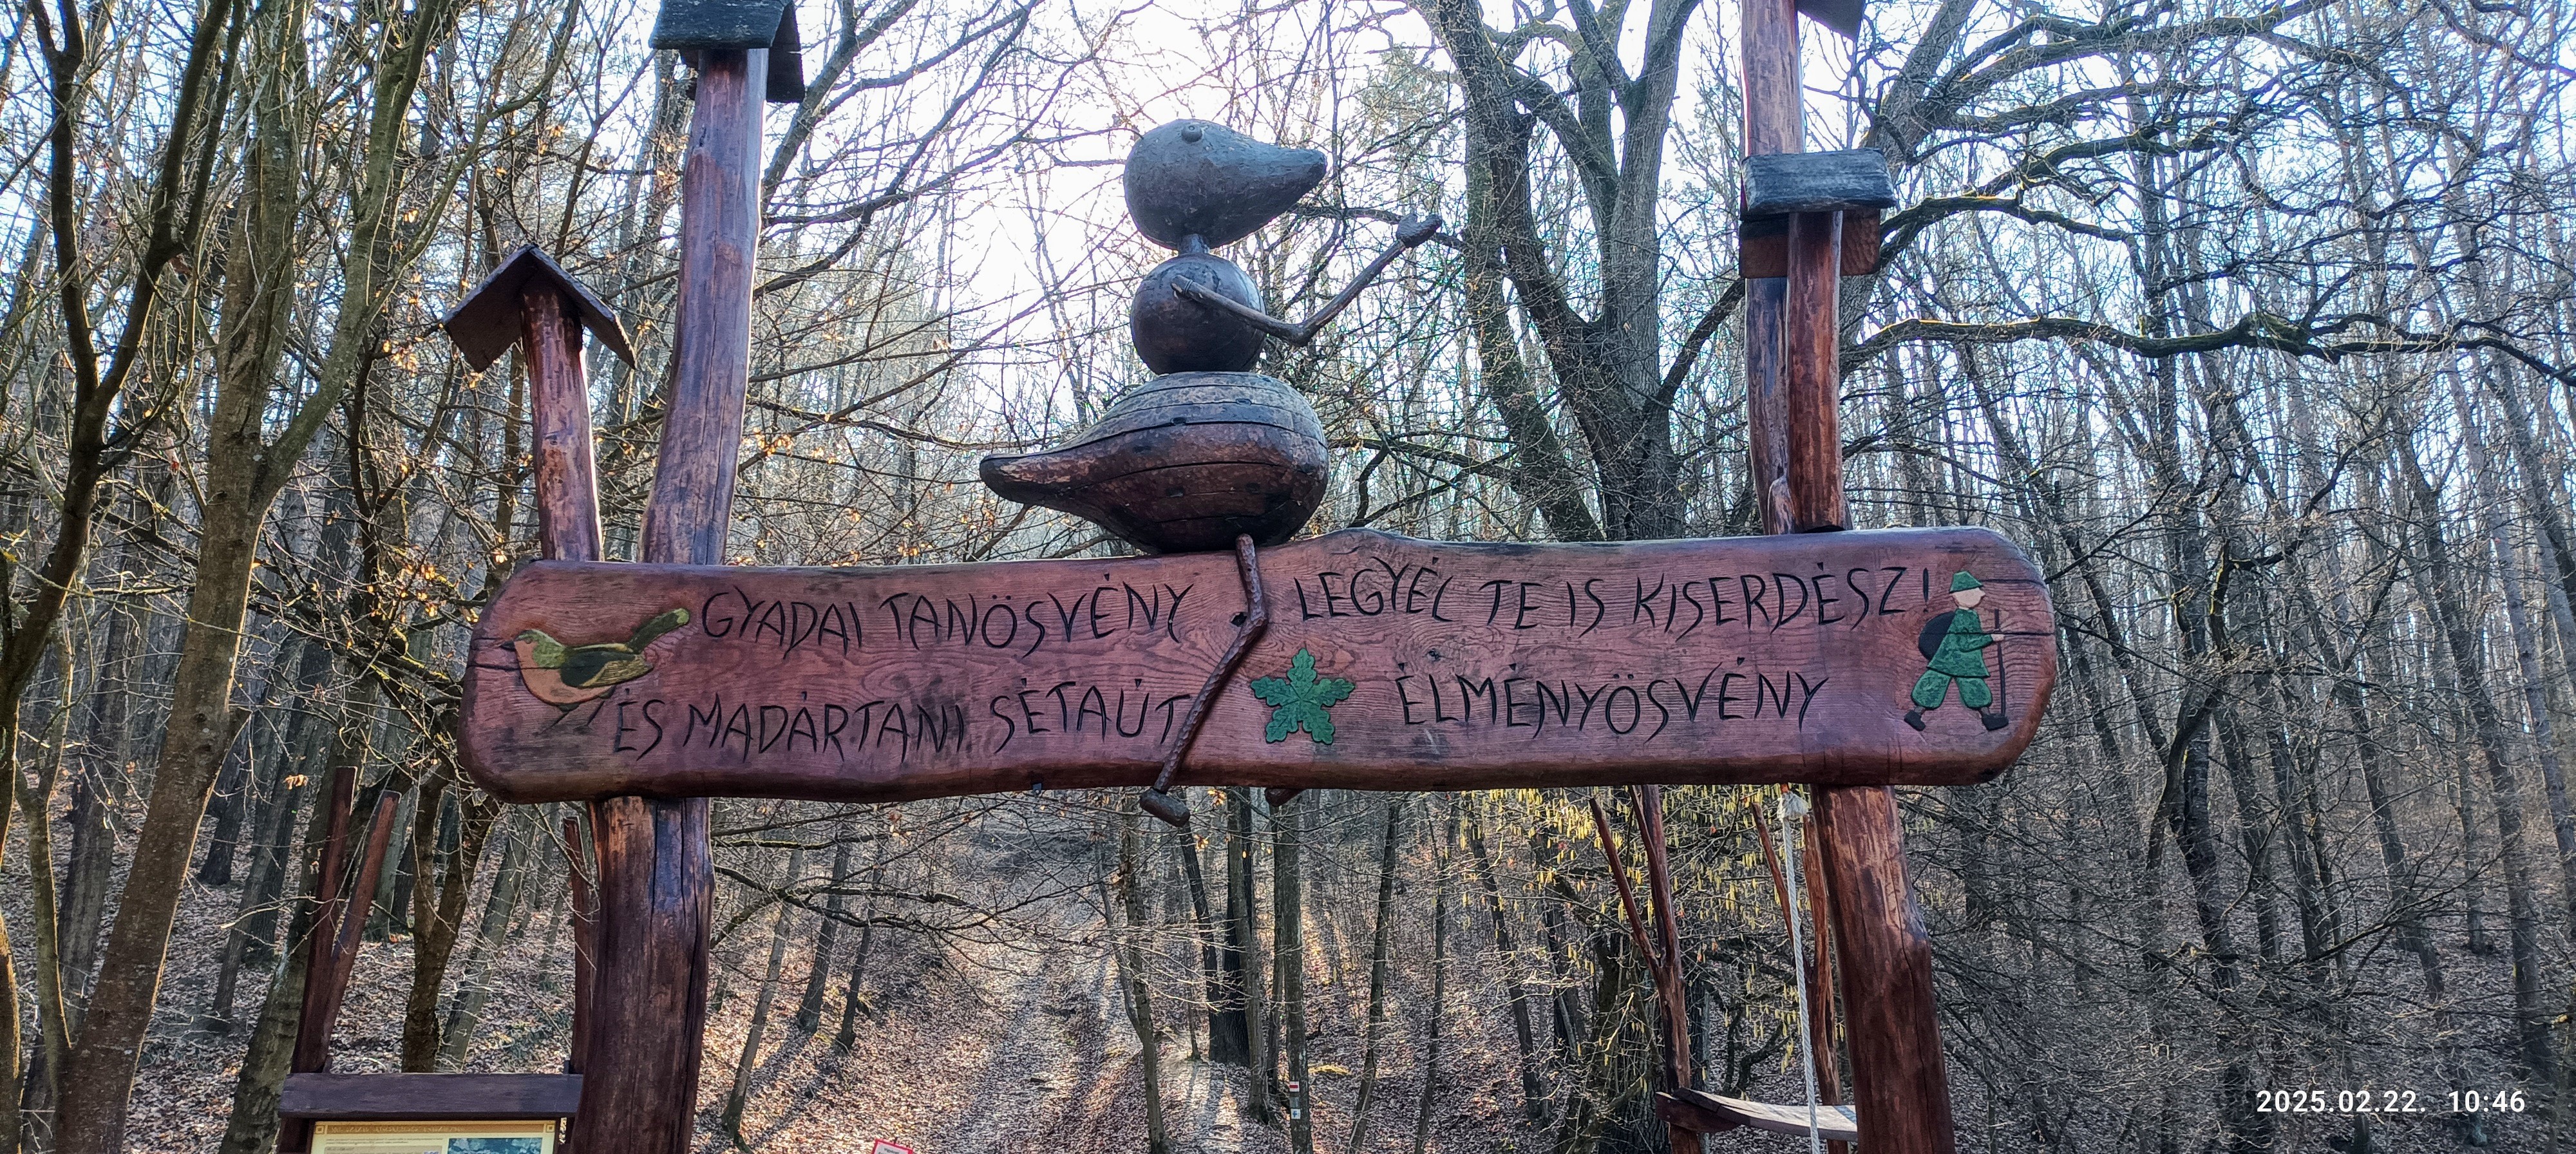 GYADAI TANÖSVÉNY
ÉS MADÁRTANI SÉTAÚT
LEGYÉL TE IS KISERDÉSZ!
ÉLMÉNYÖSVÉNY
2025.02.22. 10:46